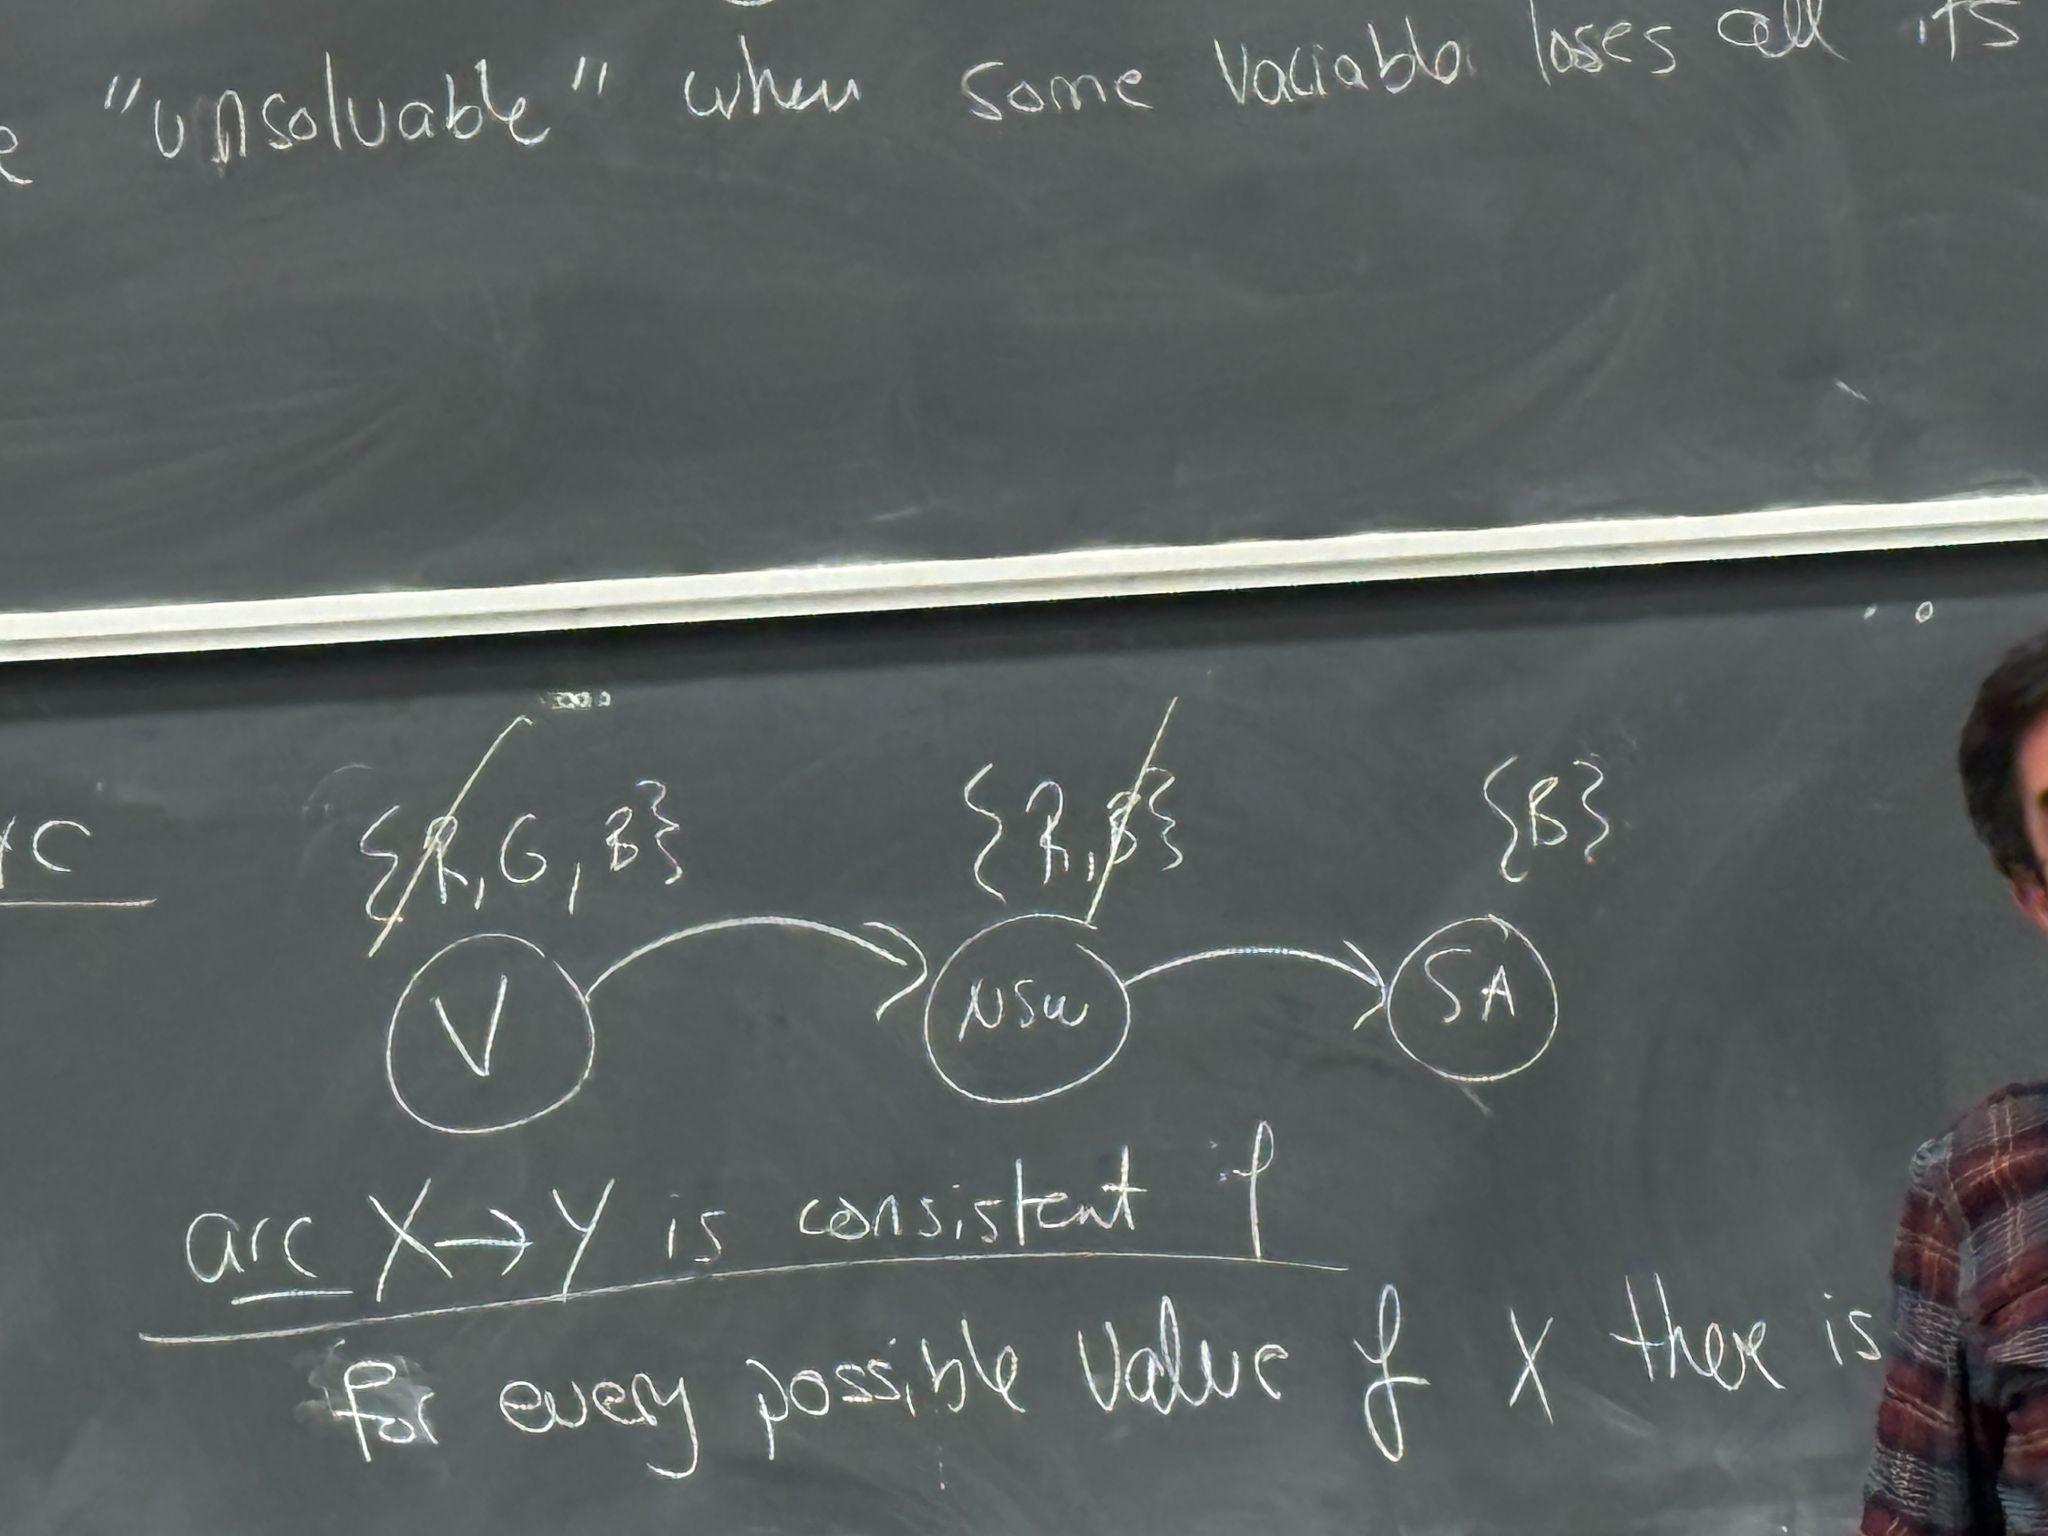 "unsolvable" when some variable loses all its
{R, G, B} {R, B} {B}
V NSW SA
arc X → Y is consistent if
for every possible value of X there is